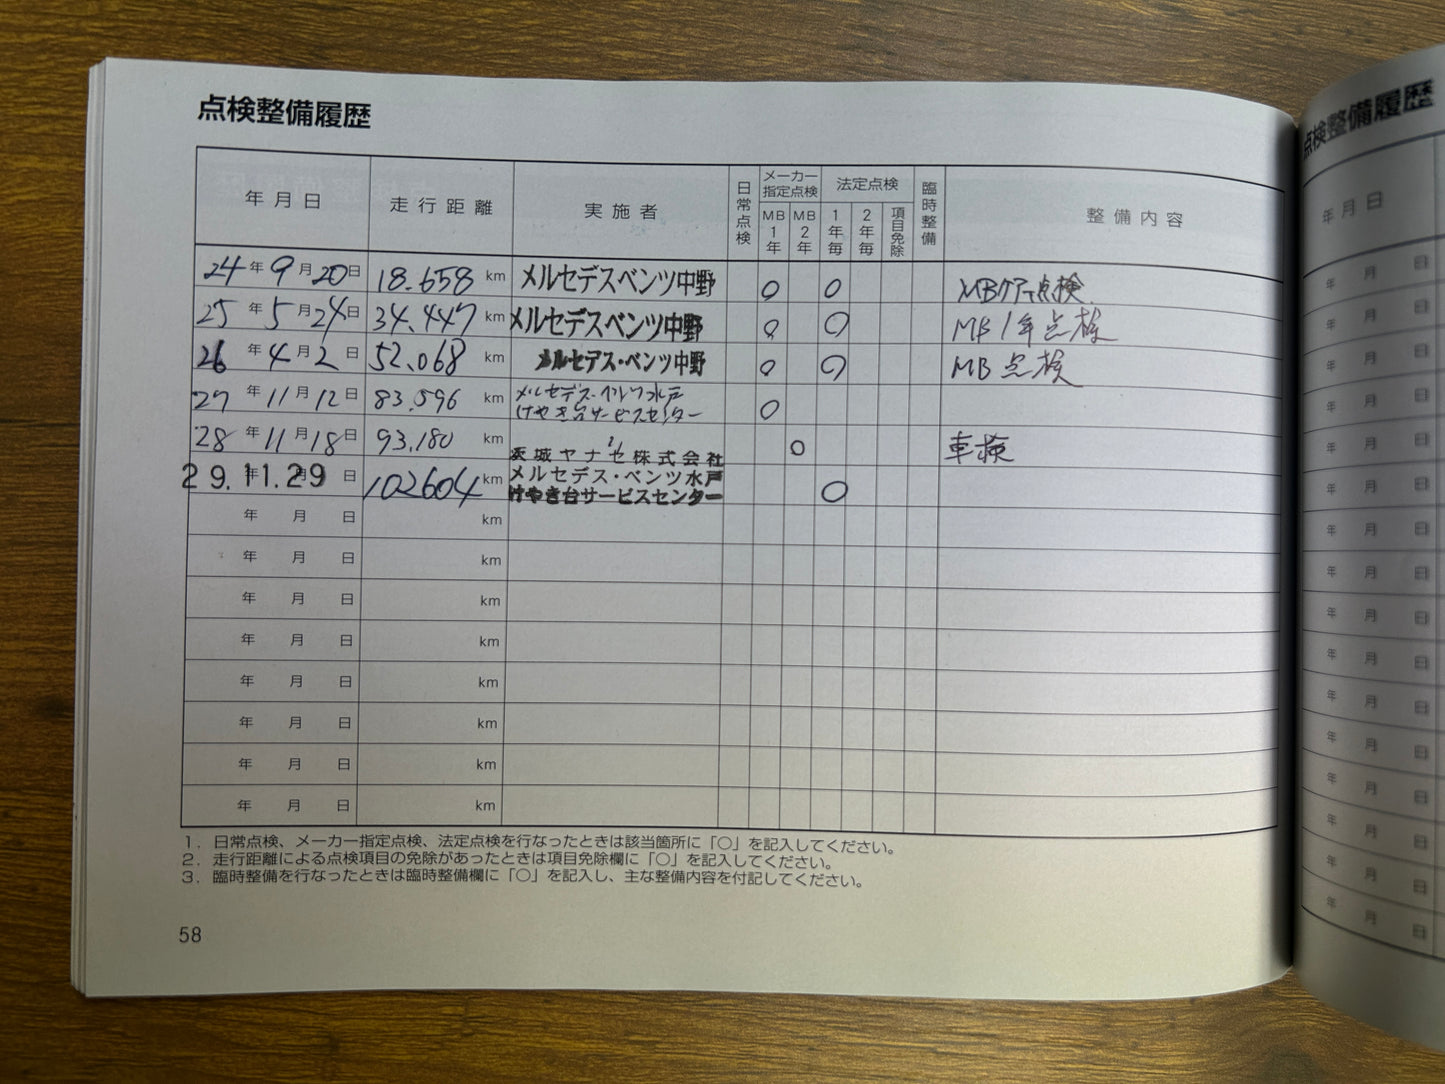 点検整備履歴
年月日 走行距離 実施者 日常点検 メーカー指定点検 MB1年 MB2年 法定点検 1年毎 2年毎 項目免除 臨時整備 整備内容
24年9月20日 18.658km メルセデスベンツ中野 ○ ○ MBケアー点検
25年5月24日 34.447km メルセデスベンツ中野 ○ ○ MB1年点検
26年4月2日 52.068km メルセデス・ベンツ中野 ○ ○ MB点検
27年11月12日 83.596km メルセデス・ベンツ水戸
けやき台サービスセンター ○
28年11月18日 93.180km 〃 ○ 車検
茨城ヤナセ株式会社
29.11.29 年月日 102604km メルセデス・ベンツ水戸
けやき台サービスセンター ○
年 月 日 km
年 月 日 km
年 月 日 km
年 月 日 km
年 月 日 km
年 月 日 km
年 月 日 km
年 月 日 km
1. 日常点検、メーカー指定点検、法定点検を行なったときは該当箇所に「○」を記入してください。
2. 走行距離による点検項目の免除があったときは項目免除欄に「○」を記入してください。
3. 臨時整備を行なったときは臨時整備欄に「○」を記入し、主な整備内容を付記してください。
58
点検整備履歴
年月日
年 月 日
年 月 日
年 月 日
年 月 日
年 月 日
年 月 日
年 月 日
年 月 日
年 月 日
年 月 日
年 月 日
年 月 日
年 月 日
年 月 日
年 月 日
年 月 日